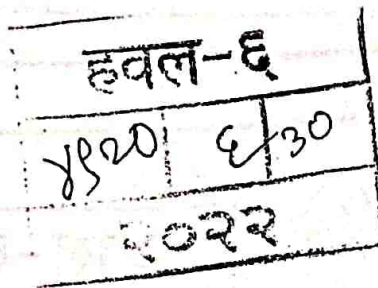 हवल-६
४९२० ६/३०
२०२२